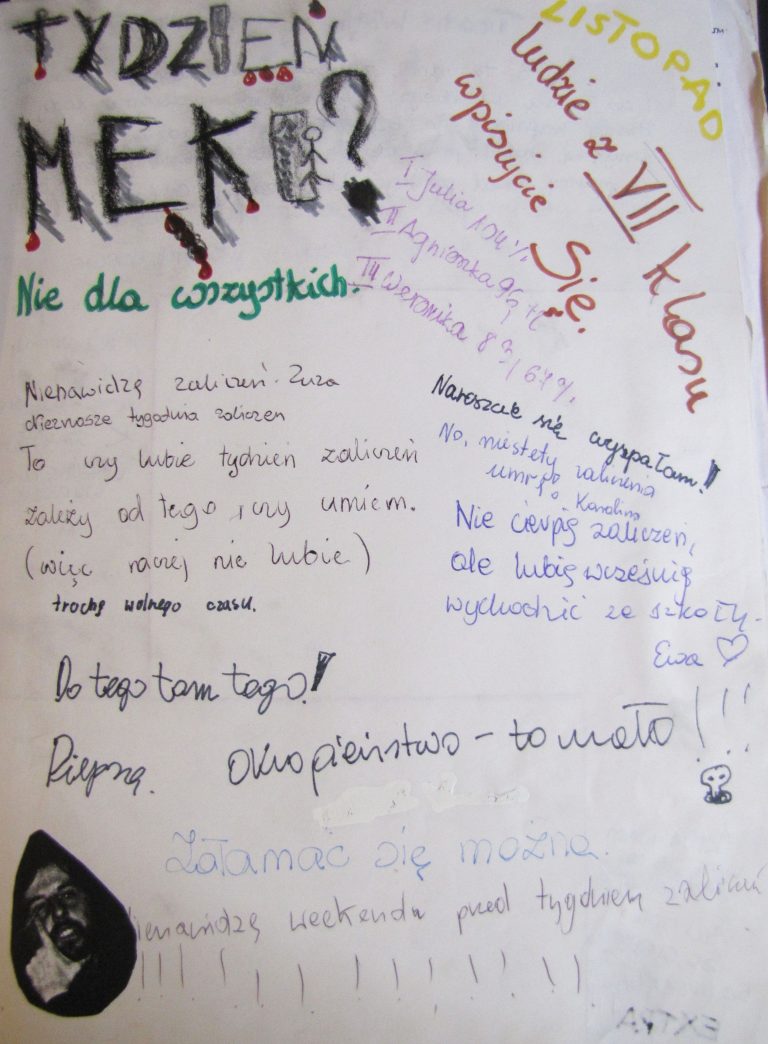 TYDZIEŃ
MĘKI?
Nie dla wszystkich.
LISTOPAD
ludzie z VII klasu
wpisujcie się.
I Julia 104%
II Agnieszka 96%
III Weronika 89/67%
Nienawidzę zaliczeń. Zuza
nieznosze tygodnia zaliczeń
To czy lubie tydzień zaliczeń
zależy od tego, czy umiem.
(więc raczej nie lubie)
trochę wolnego czasu.
Nareszcie się wyspałam!
No, niestety zaliczenia
umrę. Karolina
Nie cierpię zaliczeń,
ale lubię wcześnie
wychodzić ze szkoły.
Ewa
Do tego tam tego!
Okropieństwo - to mało!!!
Załamać się można.
nienawidzę weekendu przed tygodniem zaliczeń
!!!!!!!!!!!!!
EXTRA